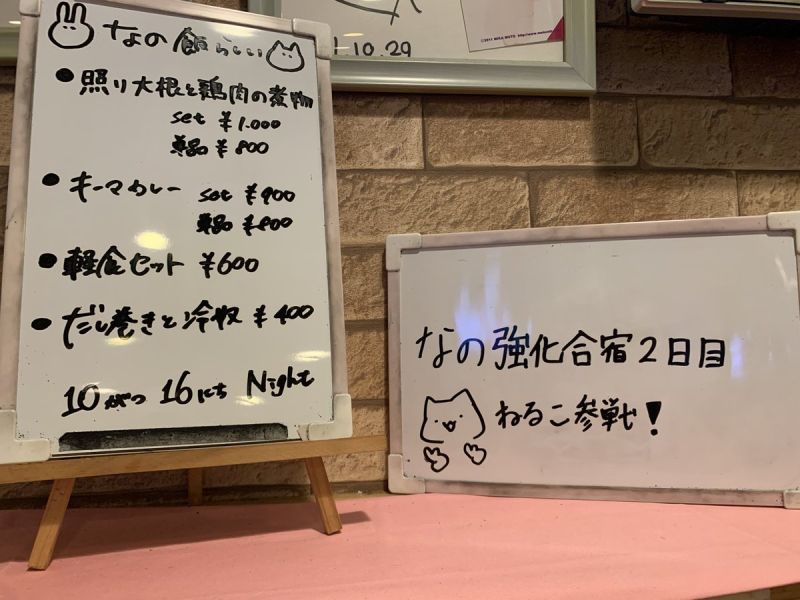 なの飯らしい
・照り大根と鶏肉の煮物
set ¥1.000
単品 ¥800
・キーマカレー set ¥900
単品 ¥800
・軽食セット ¥600
・だし巻きと冷奴 ¥400
10がつ 16にち Night
10.29
なの強化合宿2日目
ねるこ参戦!